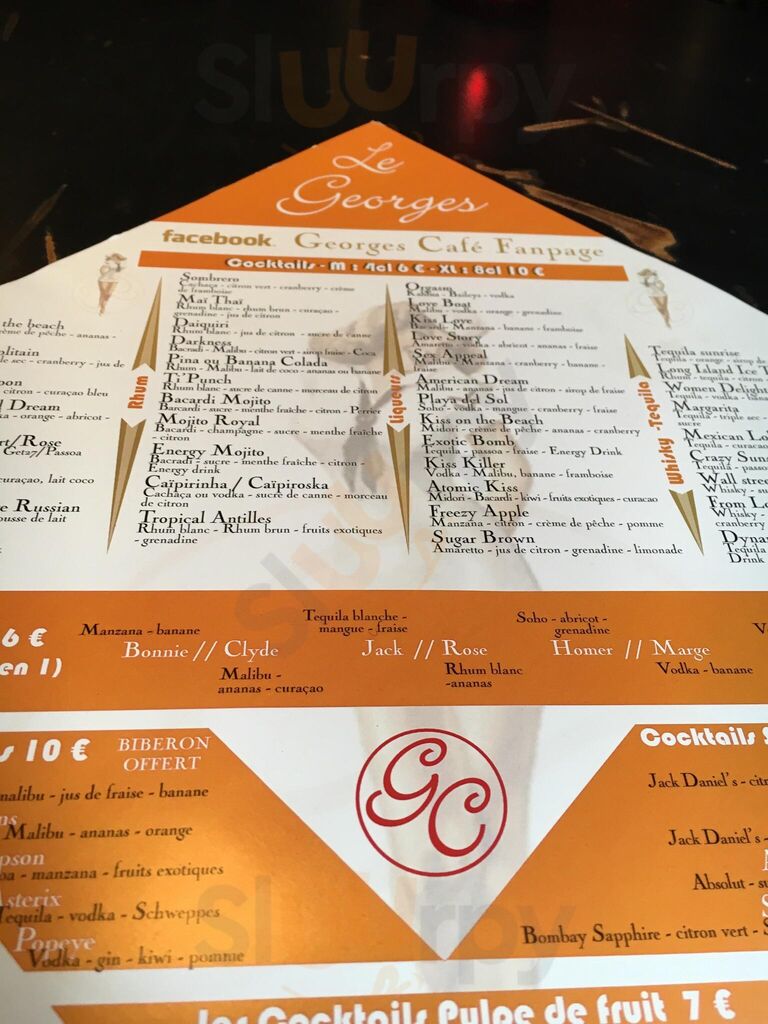 Le
Georges
facebook. Georges Café Fanpage
Cocktails - M : 4cl 6 € - XL : 8cl 10 €
the beach
crème de pêche - ananas -
de sec - cranberry - jus de
citron - curaçao bleu
Dream
- orange - abricot -
/Rose
Get27/Passoa
curaçao, lait coco
Russian
mousse de lait
Rhum
Sombrero
Cachaça - citron vert - cranberry - crème
de framboise
Maï Thaï
Rhum blanc - rhum brun - curaçao -
grenadine - jus de citron
Daïquiri
Rhum blanc - jus de citron - sucre de canne
Darkness
Bacardi - Malibu - citron vert - sirop fraise - Coca
Pina ou Banana Colada
Rhum - Malibu - lait de coco - ananas ou banane
Ti'Punch
Rhum blanc - sucre de canne - morceau de citron
Bacardi Mojito
Barcardi - sucre - menthe fraîche - citron - Perrier
Mojito Royal
Bacardi - champagne - sucre - menthe fraîche
- citron
Energy Mojito
Bacradi - sucre - menthe fraîche - citron -
Energy drink
Caïpirinha / Caïpiroska
Cachaça ou vodka - sucre de canne - morceau
de citron
Tropical Antilles
Rhum blanc - Rhum brun - fruits exotiques
- grenadine
liqueurs
Orgasm
Kahlua - Baileys - vodka
Love Boat
Malibu - vodka - orange - grenadine
Kiss Love
Bacardi - Manzana - banane - framboise
Love Story
Amaretto - vodka - abricot - ananas - fraise
Sex Appeal
Malibu - Manzana - cranberry - banane -
fraise
American Dream
Malibu - ananas - jus de citron - sirop de fraise
Playa del Sol
Soho - vodka - mangue - cranberry - fraise
Kiss on the Beach
Midori - crème de pêche - ananas - cranberry
Exotic Bomb
Tequila - passoa - fraise - Energy Drink
Kiss Killer
Vodka - Malibu, banane - framboise
Atomic Kiss
Midori - Bacardi - kiwi - fruits exotiques - curacao
Freezy Apple
Manzana - citron - crème de pêche - pomme
Sugar Brown
Amaretto - jus de citron - grenadine - limonade
Whisky - Tequila
Tequila sunrise
Tequila - orange - sirop de
Long Island Ice T
Rhum - tequila - citron
Women Delight
Tequila - vodka
Margarita
Tequila - triple sec -
sucre
Mexican Lo
Tequila - curacao
Crazy Sun
Tequila - passo
Wall stree
Whisky - su
From L
Whisky -
cranberry
Dyna
Tequila
Drink
6 €
en 1)
Manzana - banane
Bonnie // Clyde
Malibu -
ananas - curaçao
Tequila blanche -
mangue - fraise
Jack // Rose
Rhum blanc
-ananas
Soho - abricot -
grenadine
Homer // Marge
Vodka - banane
V
s 10 €
BIBERON
OFFERT
malibu - jus de fraise - banane
ns
Malibu - ananas - orange
pson
oa - manzana - fruits exotiques
Asterix
Tequila - vodka - Schweppes
Popeye
Vodka - gin - kiwi - pomme
GC
Cocktails
Jack Daniel's - citr
Jack Daniel's -
Absolut - su
Bombay Sapphire - citron vert - S
les Cocktails Pulpe de fruit 7 €
Sluurpy
Sluurpy
Sluurpy